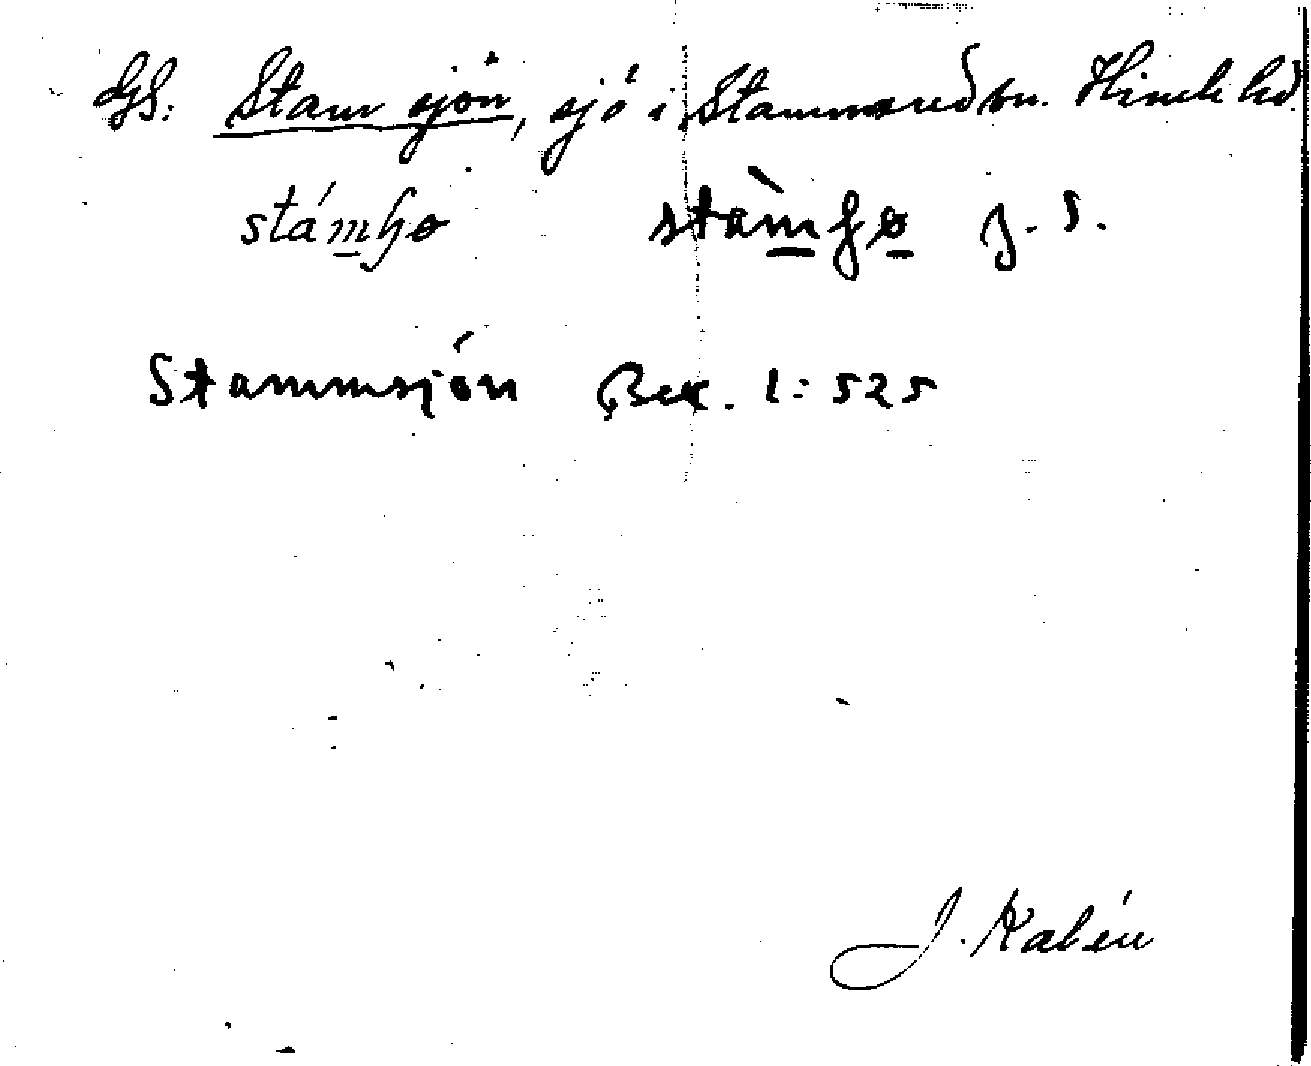 GS. Stam sjön, sjö i Stammared sn. Himle hd.
stámʃo stàmʃo J. S.
Stammsjön Bex. 1: 525
J. Kalén